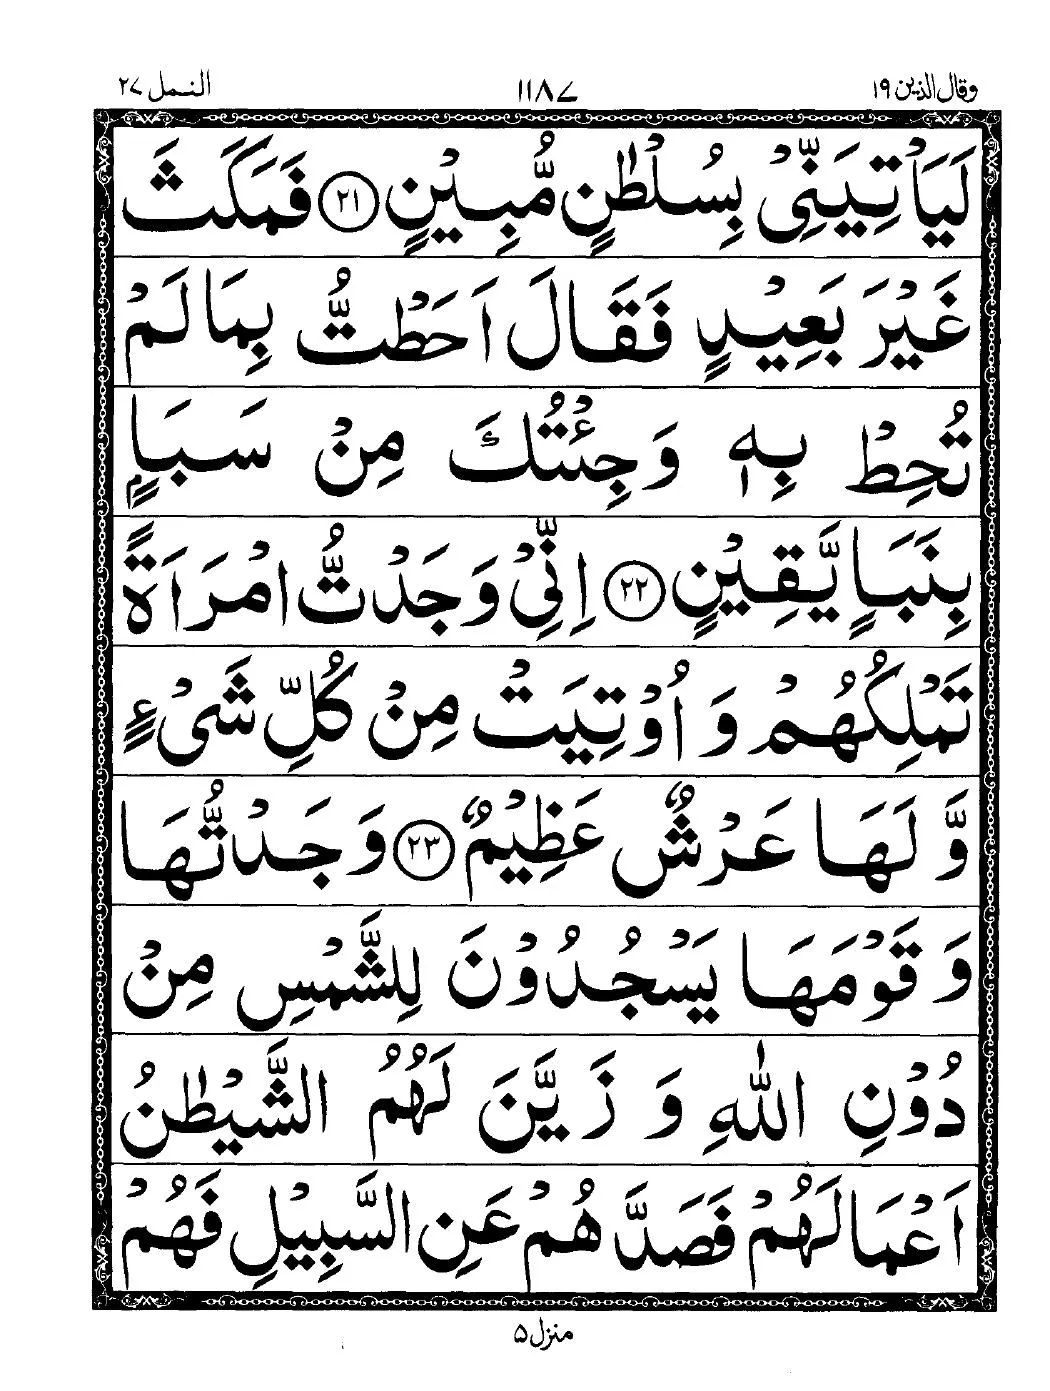 وقال الذین ۱۹
۱۱۸۷
النمل ۲۷
لَیَاْتِیَنِّیْ بِسُلْطٰنٍ مُّبِیْنٍ ﴿۲۱﴾ فَمَكَثَ
غَیْرَ بَعِیْدٍ فَقَالَ اَحَطْتُّ بِمَا لَمْ
تُحِطْ بِهٖ وَ جِئْتُكَ مِنْ سَبَاٍۭ
بِنَبَاٍ یَّقِیْنٍ ﴿۲۲﴾ اِنِّیْ وَجَدْتُّ امْرَاَةً
تَمْلِكُهُمْ وَ اُوْتِیَتْ مِنْ كُلِّ شَیْءٍ
وَّ لَهَا عَرْشٌ عَظِیْمٌ ﴿۲۳﴾ وَجَدْتُّهَا
وَ قَوْمَهَا یَسْجُدُوْنَ لِلشَّمْسِ مِنْ
دُوْنِ اللّٰهِ وَ زَیَّنَ لَهُمُ الشَّیْطٰنُ
اَعْمَالَهُمْ فَصَدَّهُمْ عَنِ السَّبِیْلِ فَهُمْ
منزل ۵